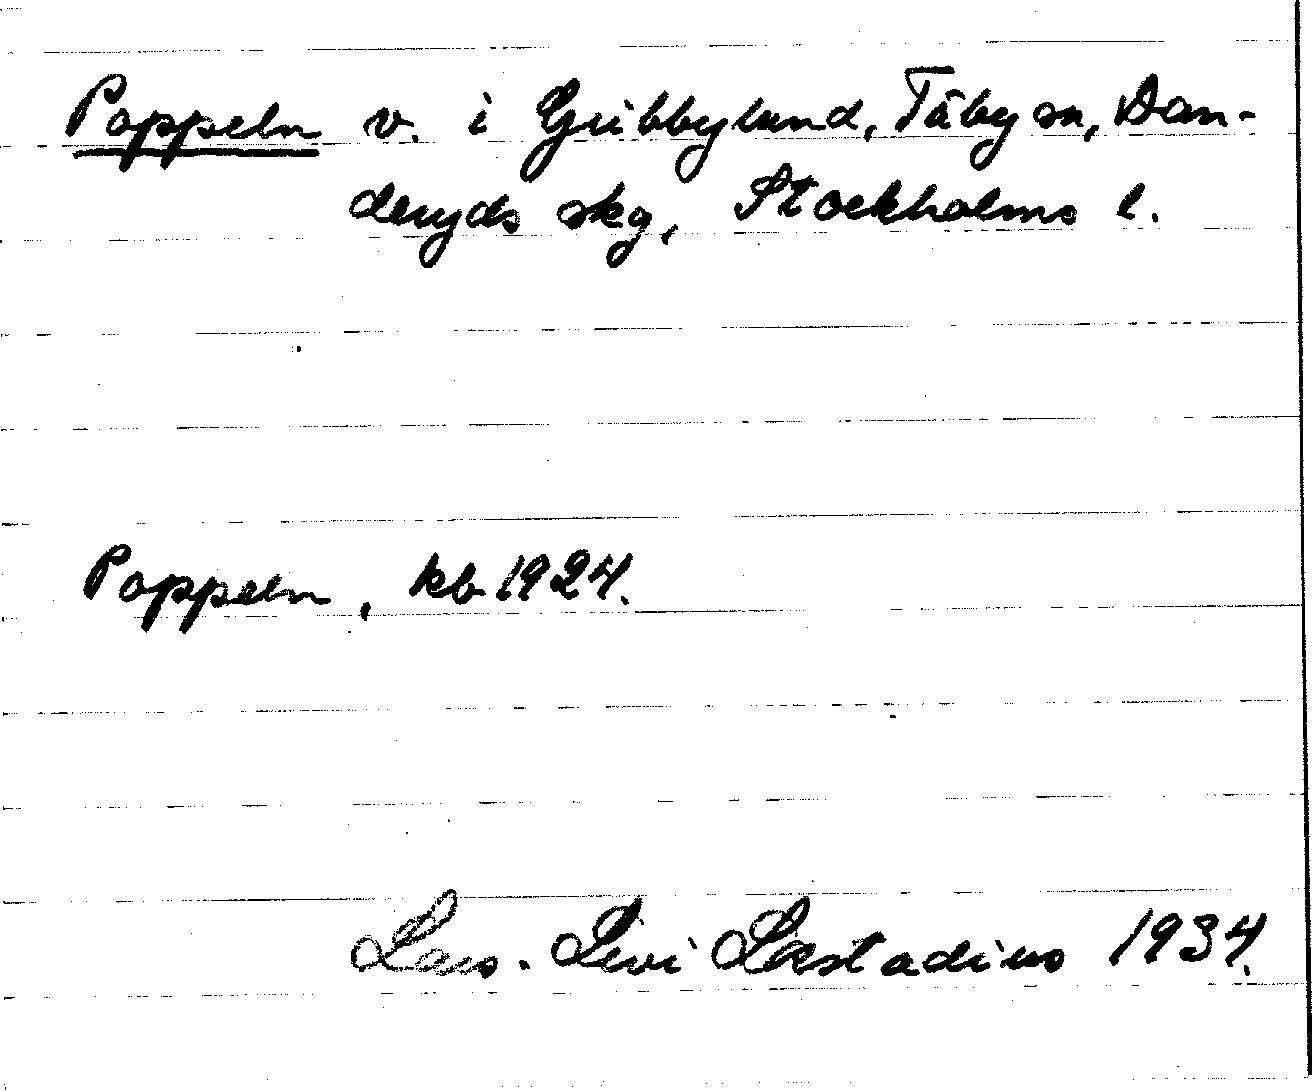 Poppeln v. i Gribbylund, Täby sn, Dan-
deryds skg, Stockholms l.
Poppeln, kb 1924.
Lars-Levi Læstadius 1934.